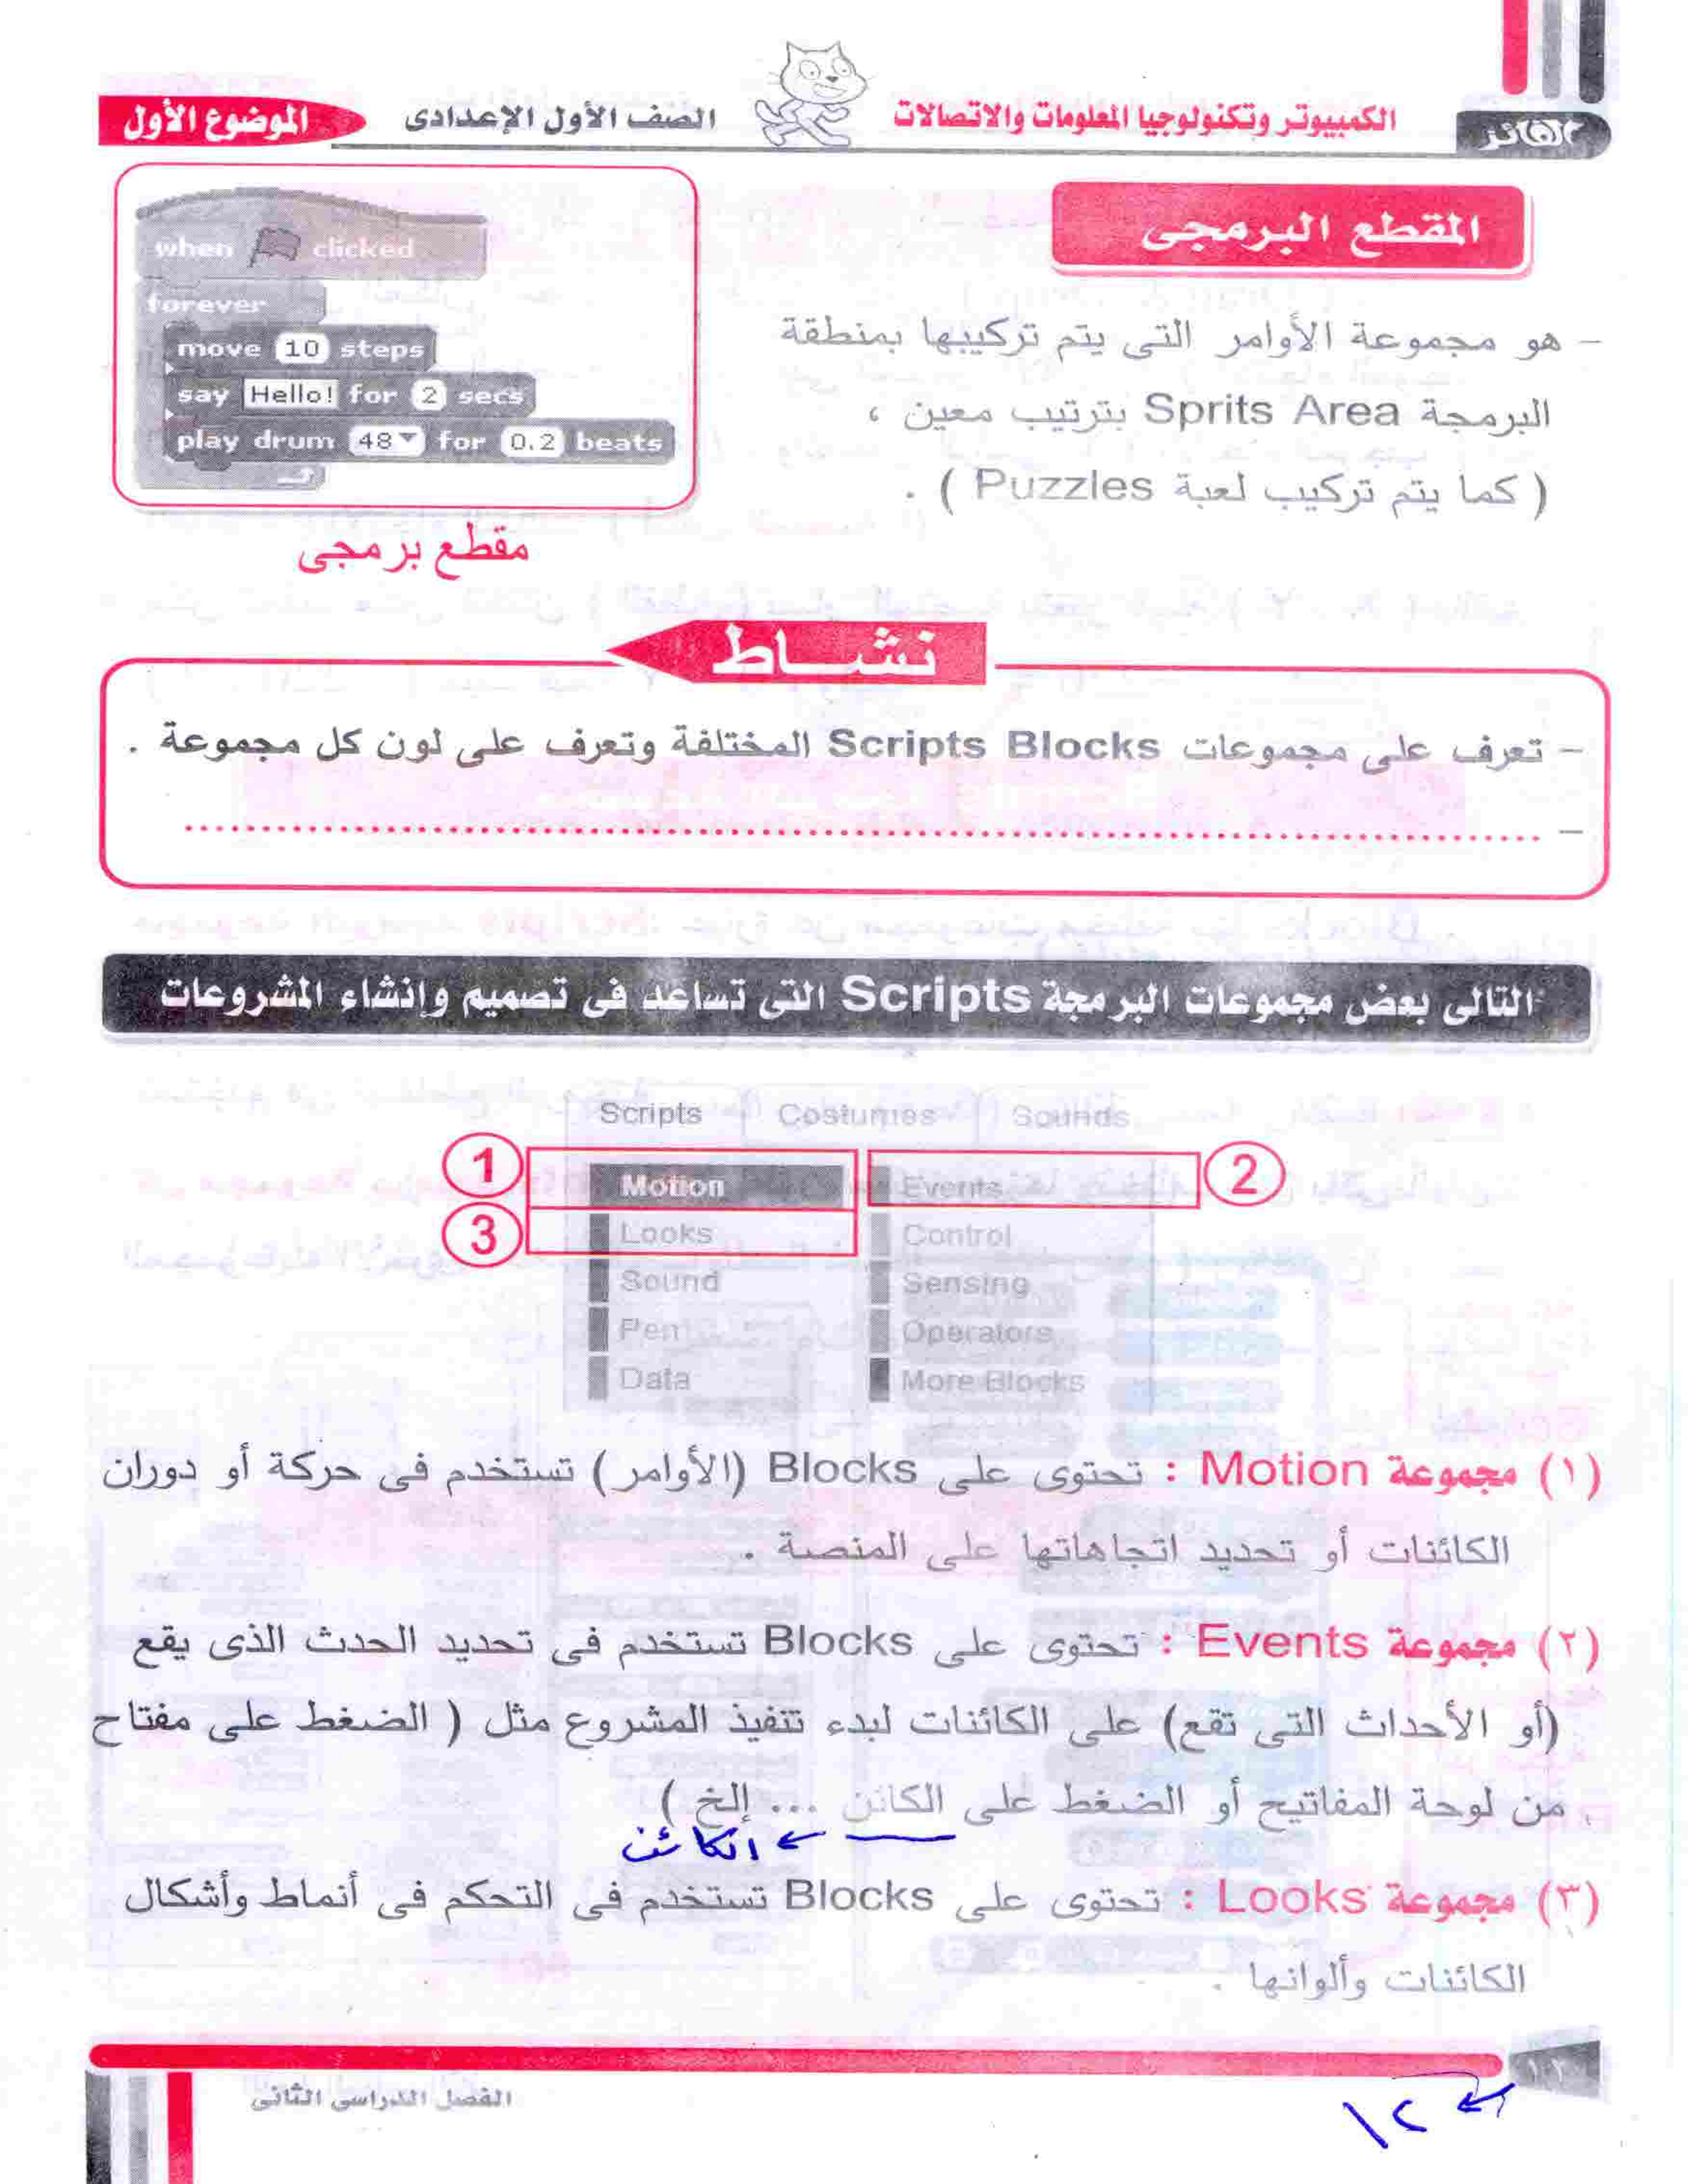 الفائز
الكمبيوتر وتكنولوجيا المعلومات والاتصالات
الصف الأول الإعدادى
الموضوع الأول
المقطع البرمجى
- هو مجموعة الأوامر التى يتم تركيبها بمنطقة
البرمجة Sprits Area بترتيب معين ،
( كما يتم تركيب لعبة Puzzles ) .
when clicked
forever
move 10 steps
say Hello! for 2 secs
play drum 48 for 0.2 beats
مقطع برمجى
نشاط
- تعرف على مجموعات Scripts Blocks المختلفة وتعرف على لون كل مجموعة .
- ........................................
التالى بعض مجموعات البرمجة Scripts التى تساعد فى تصميم وإنشاء المشروعات
Scripts Costumes Sounds
1 Motion Events 2
3 Looks Control
Sound Sensing
Pen Operators
Data More Blocks
(١) مجموعة Motion : تحتوى على Blocks (الأوامر) تستخدم فى حركة أو دوران
الكائنات أو تحديد اتجاهاتها على المنصة .
(٢) مجموعة Events : تحتوى على Blocks تستخدم فى تحديد الحدث الذى يقع
(أو الأحداث التى تقع) على الكائنات لبدء تنفيذ المشروع مثل ( الضغط على مفتاح
من لوحة المفاتيح أو الضغط على الكائن ... إلخ )
الكائن
(٣) مجموعة Looks : تحتوى على Blocks تستخدم فى التحكم فى أنماط وأشكال
الكائنات وألوانها .
١٢
الفصل الدراسى الثانى